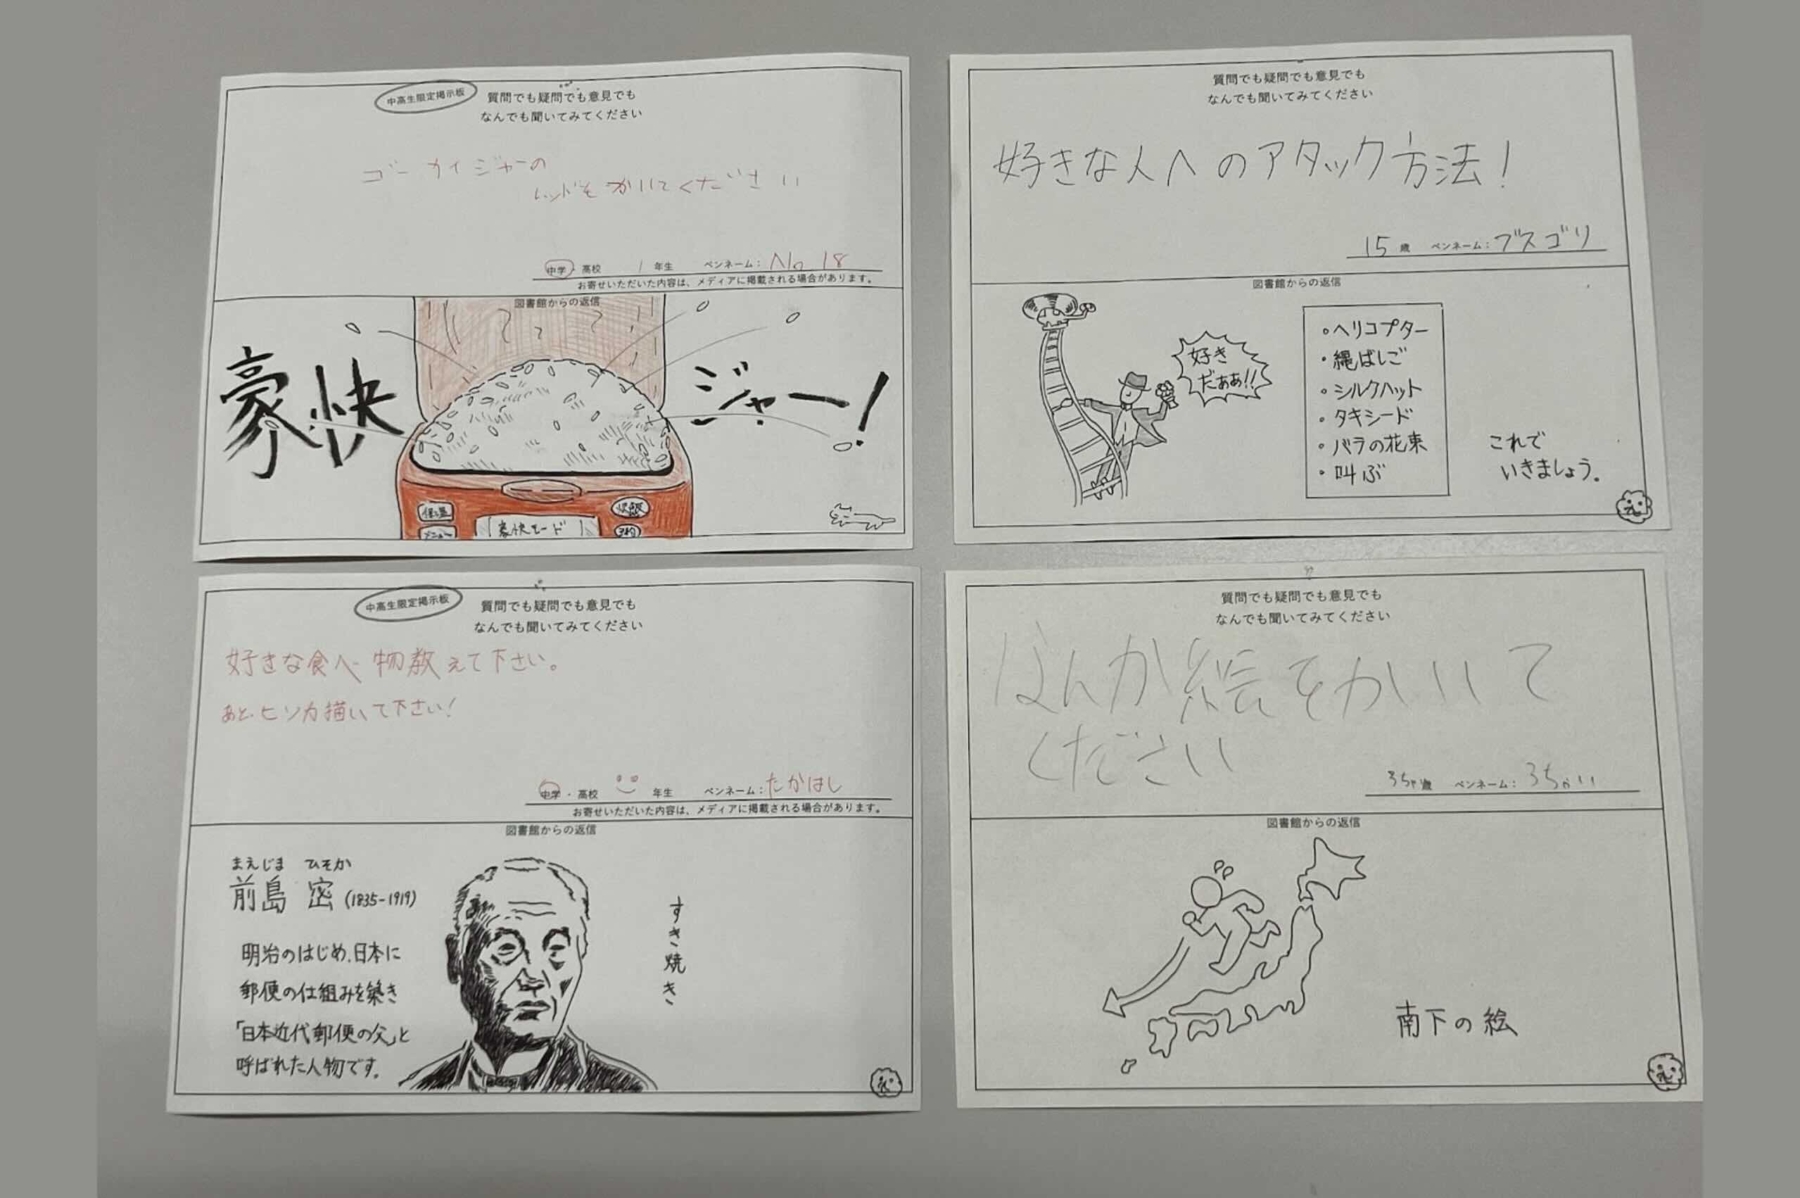 中高生限定掲示板
質問でも疑問でも意見でも
なんでも聞いてみてください
ゴーカイジャーの
レッドをかいてください
中学・高校 1年生 ペンネーム：No 18
お寄せいただいた内容は、メディアに掲載される場合があります。
図書館からの返信
豪快ジャー!
保温
炊飯
メニュー
豪快モード
予約
質問でも疑問でも意見でも
なんでも聞いてみてください
好きな人へのアタック方法!
15歳 ペンネーム：ブスゴリ
図書館からの返信
好き
だぁぁ!!
・ヘリコプター
・縄ばしご
・シルクハット
・タキシード
・バラの花束
・叫ぶ
これで
いきましょう。
中高生限定掲示板
質問でも疑問でも意見でも
なんでも聞いてみてください
好きな食べ物教えて下さい。
あと、ヒソカ描いて下さい!
中学・高校 年生 ペンネーム：たかはし
お寄せいただいた内容は、メディアに掲載される場合があります。
図書館からの返信
まえじま ひそか
前島 密(1835-1919)
明治のはじめ、日本に
郵便の仕組みを築き
「日本近代郵便の父」と
呼ばれた人物です。
すき焼き
質問でも疑問でも意見でも
なんでも聞いてみてください
なんか絵をかいいて
ください
3ちゃ歳 ペンネーム：3ちゃい
図書館からの返信
南下の絵